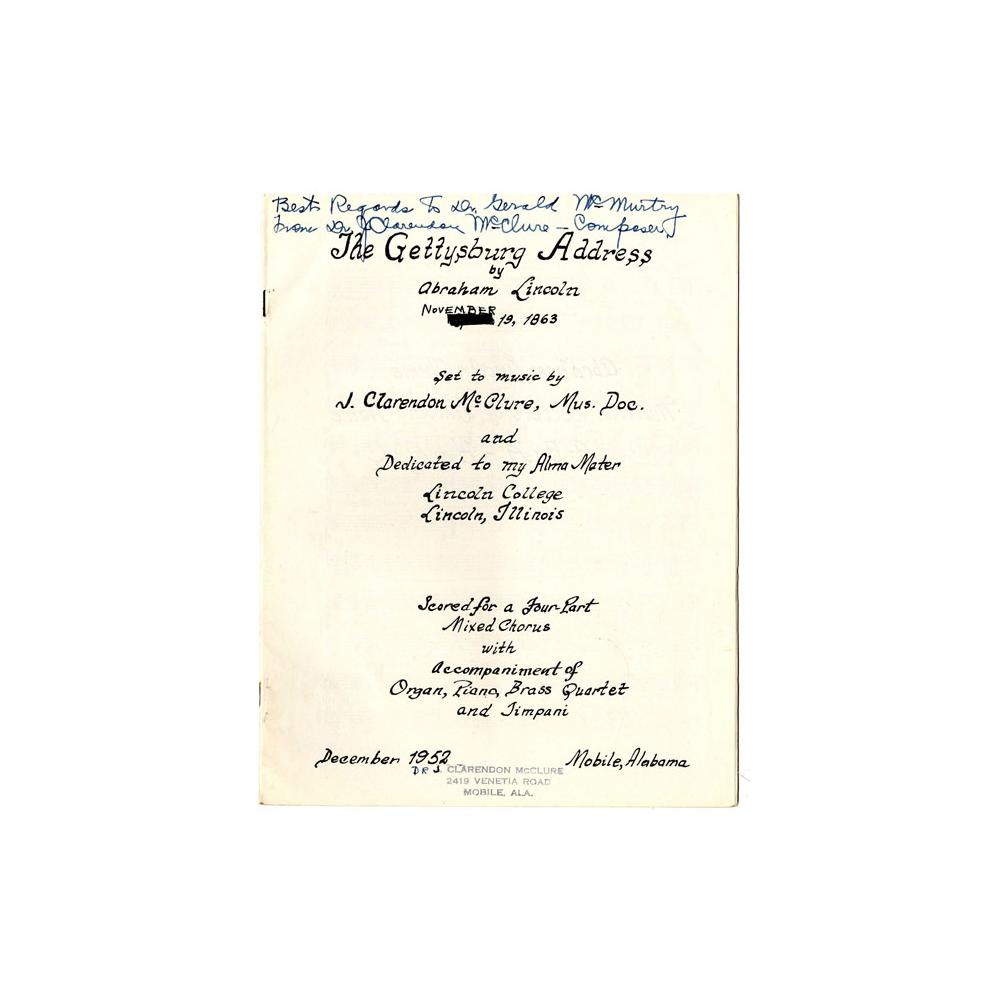 Best Regards To Dr. Gerald McMurtry
From Dr J Clarendon McClure - Composer
The Gettysburg Address
by
Abraham Lincoln
NOVEMBER
19, 1863
Set to music by
J. Clarendon McClure, Mus. Doc.
and
Dedicated to my Alma Mater
Lincoln College
Lincoln, Illinois
Scored for a Four-Part
Mixed Chorus
with
Accompaniment of
Organ, Piano, Brass Quartet
and Timpani
December 1952 Mobile, Alabama
DR J. CLARENDON McCLURE
2419 VENETIA ROAD
MOBILE, ALA.